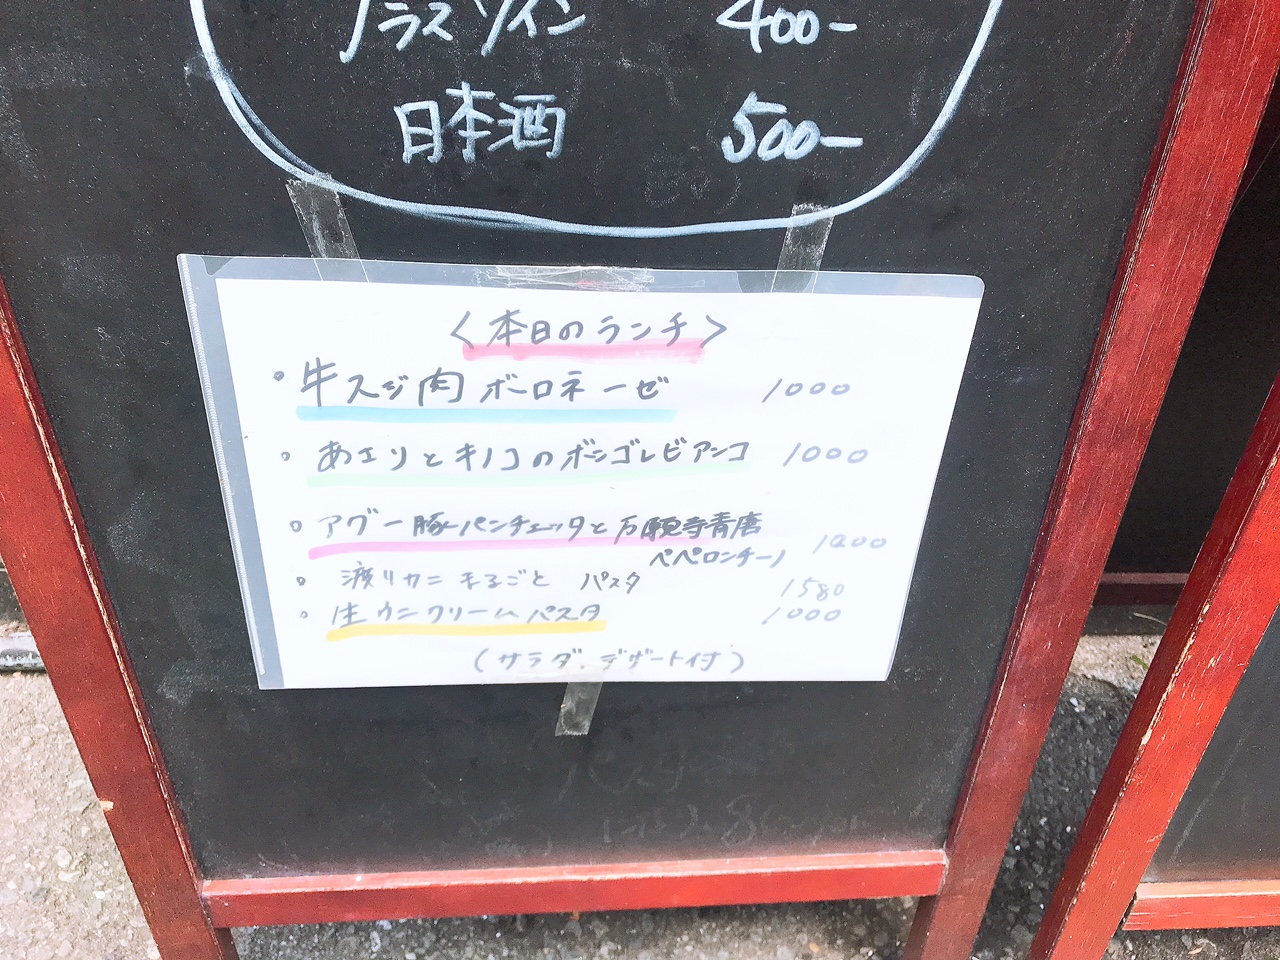 グラスワイン 400-
日本酒 500-
<本日のランチ>
・牛スジ肉ボーロネーゼ 1000
・あエリとキノコのボンゴレビアンコ 1000
・アグー豚パンチェッタと万願寺青唐
ペペロンチーノ 1200
・渡りカニまるごと パスタ 1580
・生ウニクリームパスタ 1000
(サラダ.デザート付)